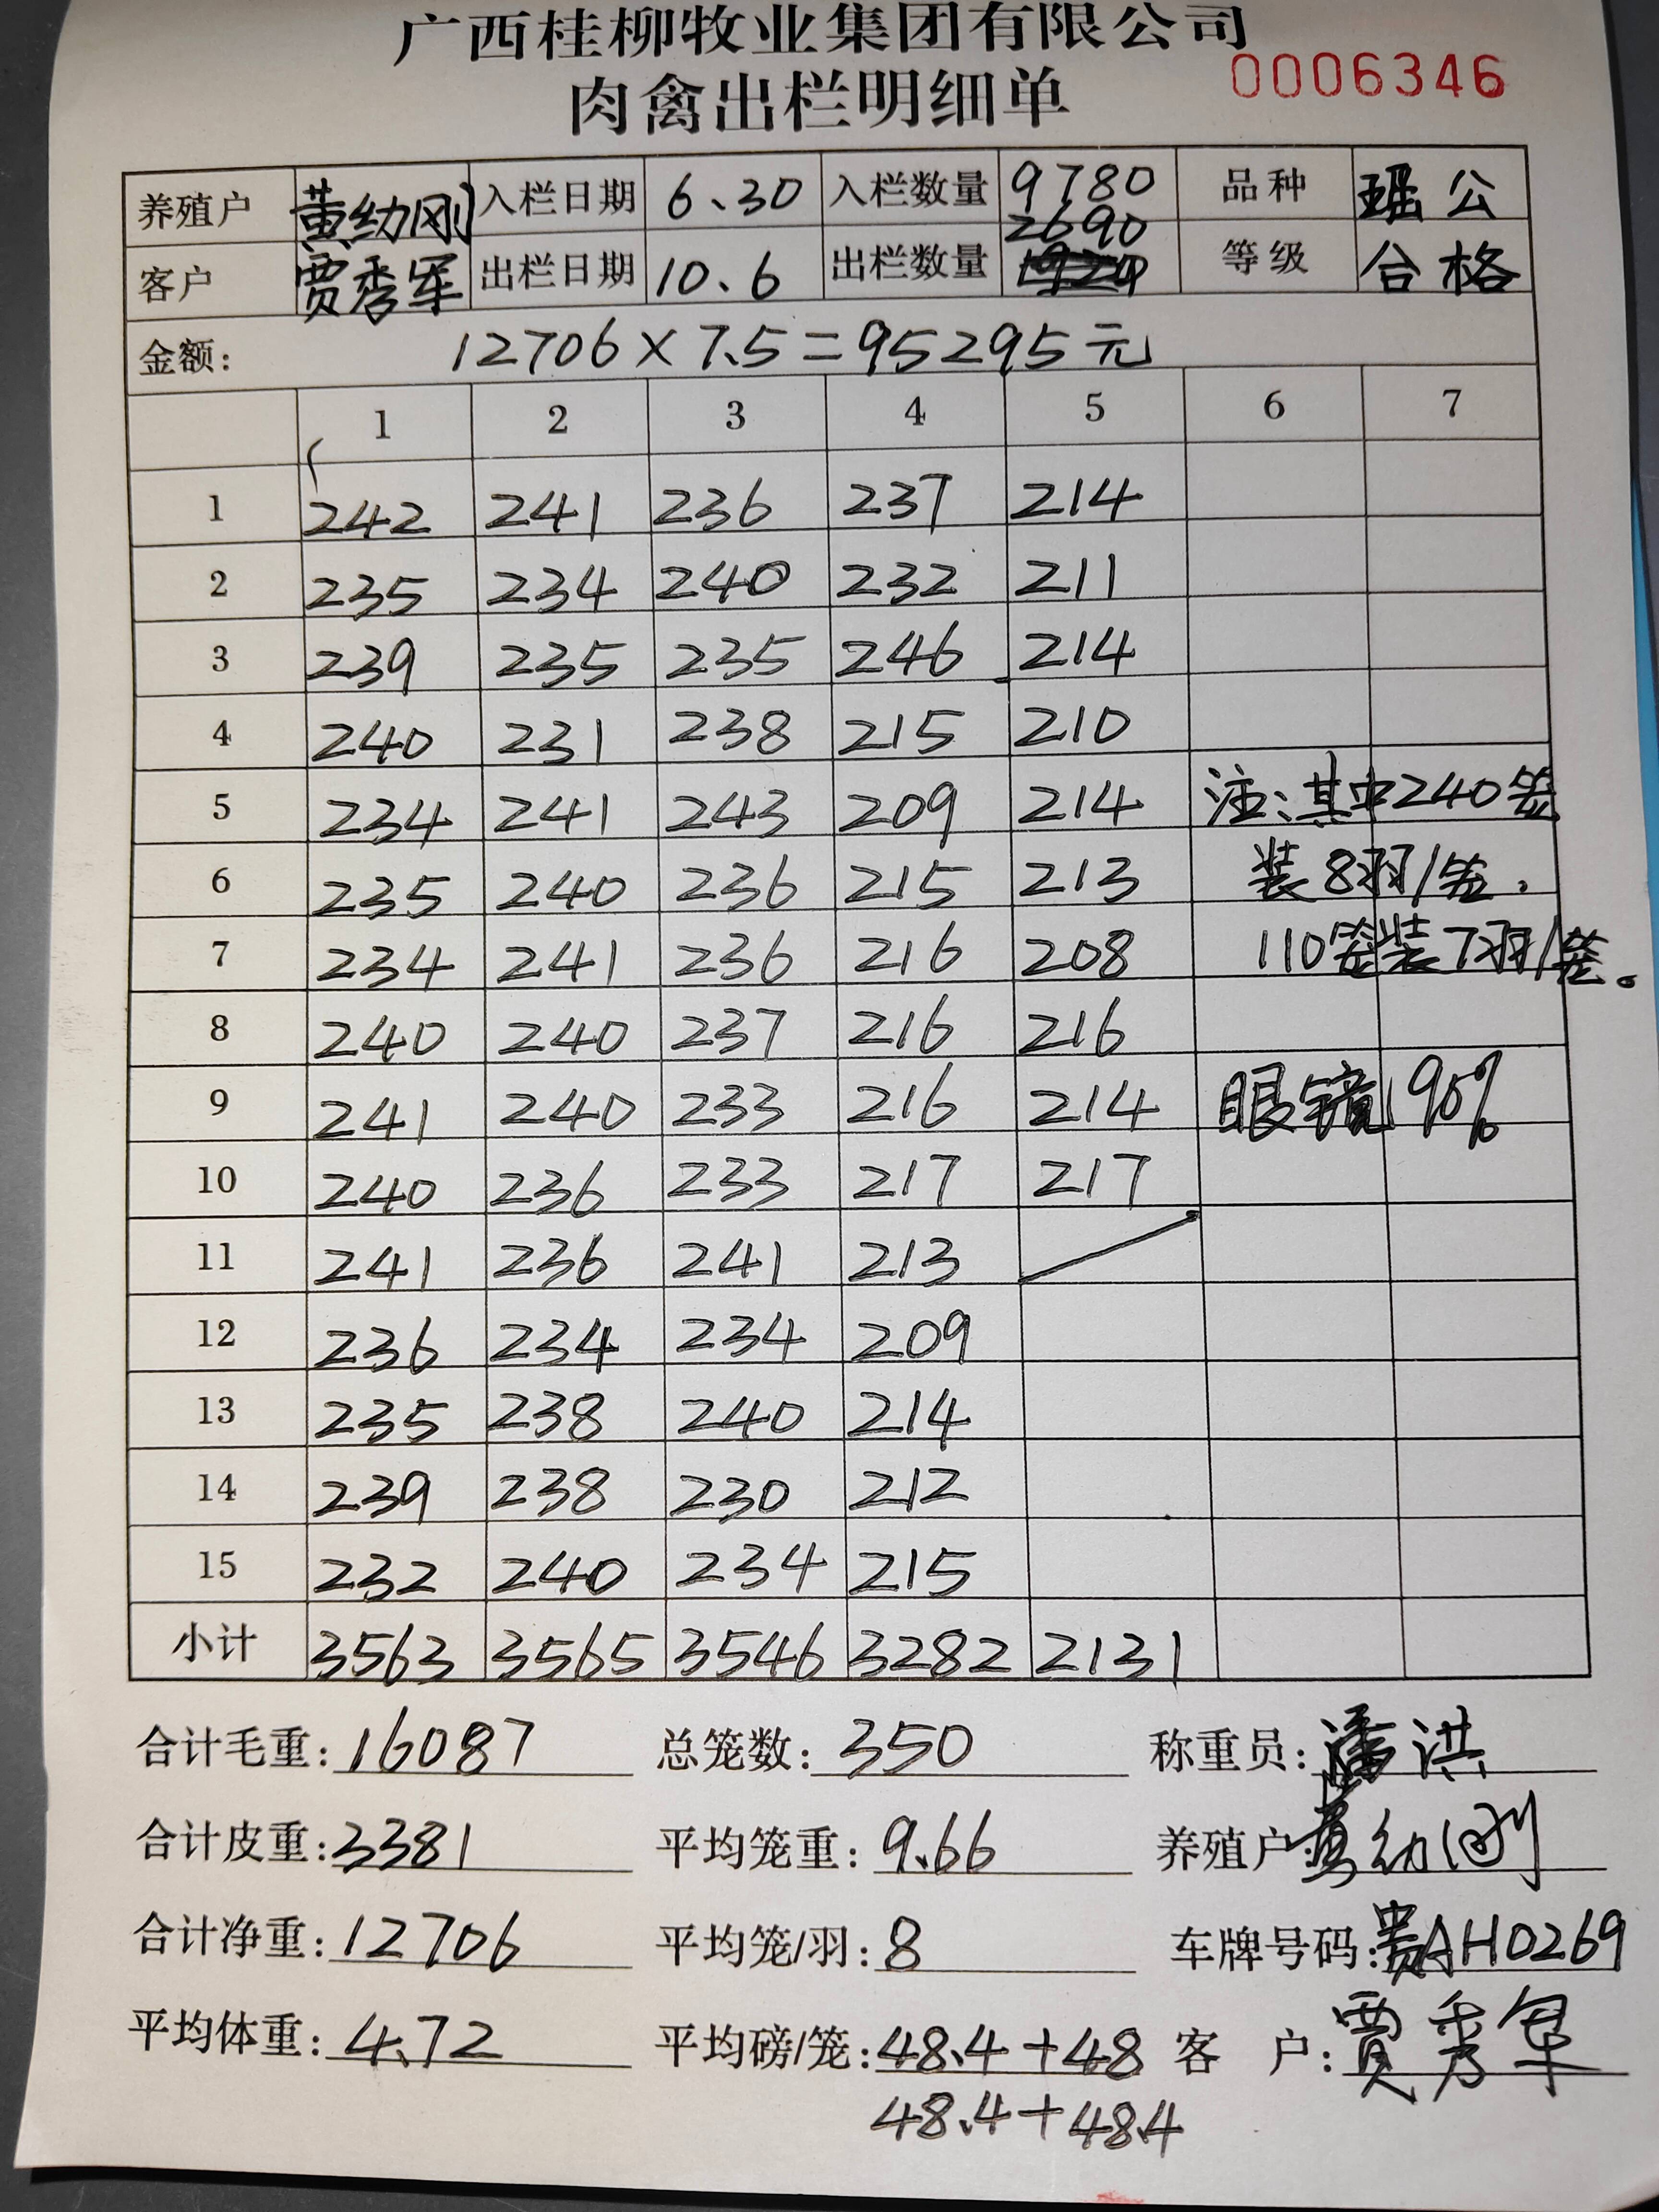 广西桂柳牧业集团有限公司
肉禽出栏明细单 0006346
养殖户 黄幼刚 入栏日期 6.30 入栏数量 9780 品种 瑶公
客户 贾秀军 出栏日期 10.6 出栏数量 2690 等级 合格
金额: 12706×7.5=95295元
1 2 3 4 5 6 7
1 242 241 236 237 214
2 235 234 240 232 211
3 239 235 235 246 214
4 240 231 238 215 210
5 234 241 243 209 214 注:其中240笼
6 235 240 236 215 213 装8羽/笼.
7 234 241 236 216 208 110笼装7羽/笼。
8 240 240 237 216 216
9 241 240 233 216 214 眼镜90%
10 240 236 233 217 217
11 241 236 241 213
12 236 234 234 209
13 235 238 240 214
14 239 238 230 212
15 232 240 234 215
小计 3563 3565 3546 3282 2131
合计毛重:16087 总笼数:350 称重员:潘洪
合计皮重:3381 平均笼重:9.66 养殖户:黄幼刚
合计净重:12706 平均笼/羽:8 车牌号码:贵AH0269
平均体重:4.72 平均磅/笼:48.4+48 客户:贾秀军
48.4+48.4